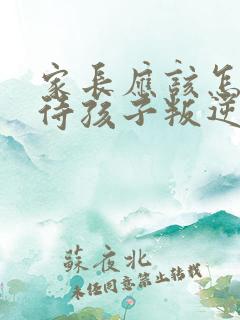 家長應該怎
待孩子叛逆
蘇夜北
未经同意禁止转载